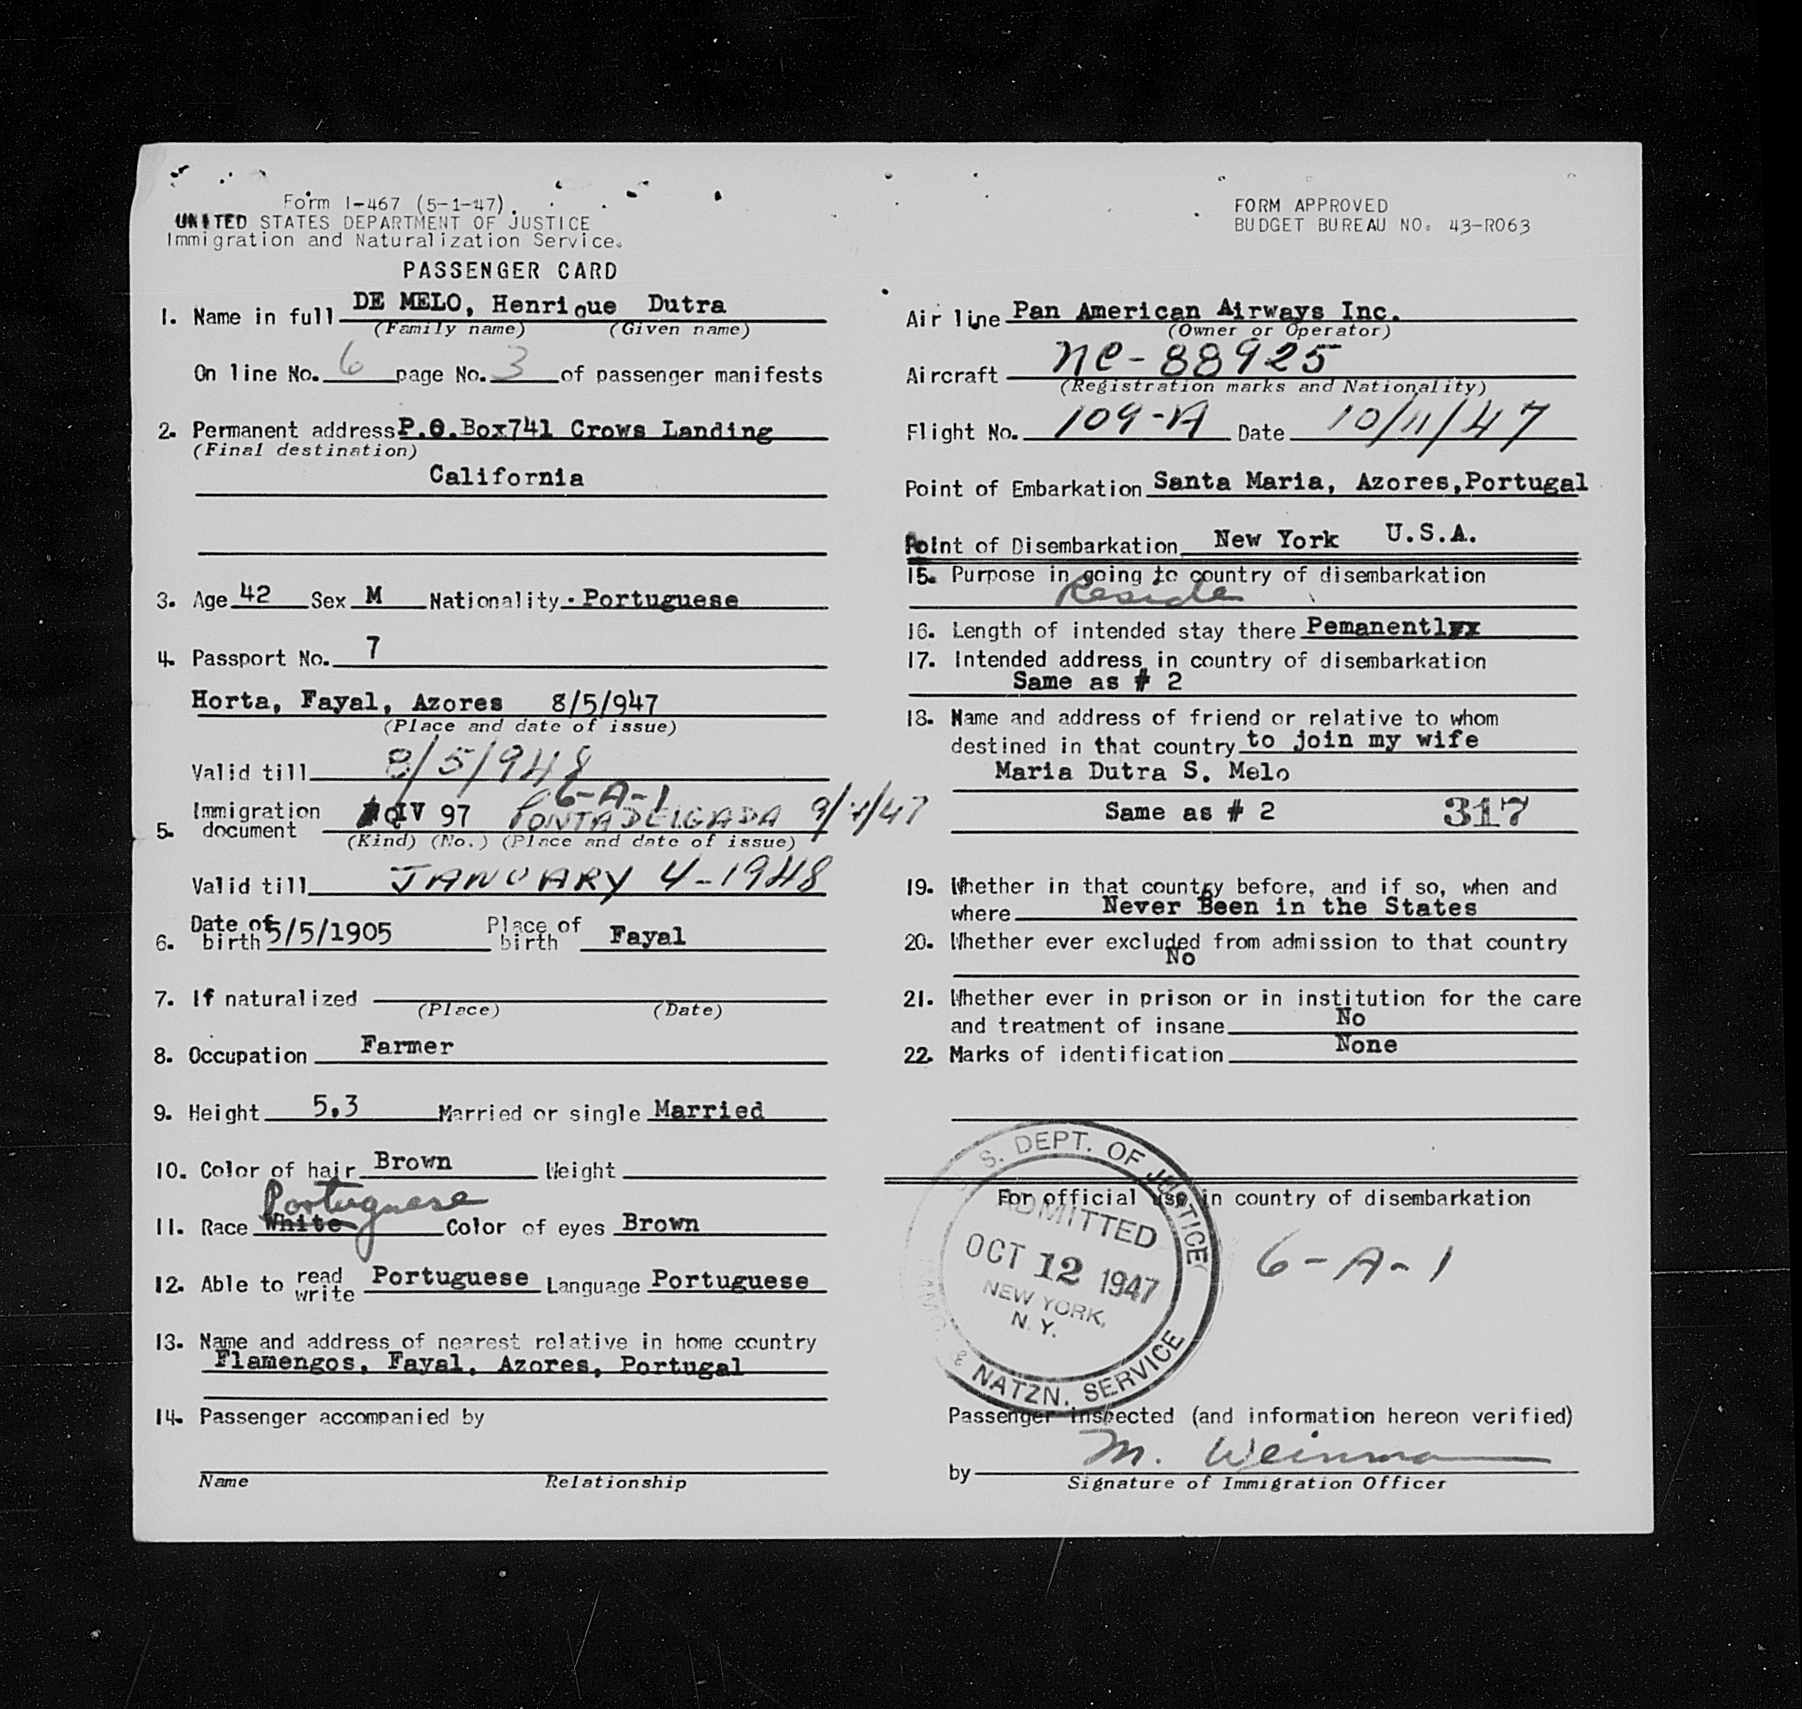 Form I-467 (5-1-47).
UNITED STATES DEPARTMENT OF JUSTICE
Immigration and Naturalization Service.
PASSENGER CARD
1. Name in full DE MELO, Henrique Dutra
(Family name) (Given name)
On line No. 6 page No. 3 of passenger manifests
2. Permanent address P.O.Box741 Crows Landing
(Final destination)
California
3. Age 42 Sex M Nationality Portuguese
4. Passport No. 7
Horta, Fayal, Azores 8/5/947
(Place and date of issue)
Valid till 8/5/948
6-A-1
5. Immigration document QIV 97 PONTA DELGADA 9/4/47
(Kind) (No.) (Place and date of issue)
Valid till JANUARY 4-1948
6. Date of birth 5/5/1905 Place of birth Fayal
7. If naturalized
(Place) (Date)
8. Occupation Farmer
9. Height 5,3 Married or single Married
10. Color of hair Brown Weight
Portuguese
11. Race White Color of eyes Brown
12. Able to read write Portuguese Language Portuguese
13. Name and address of nearest relative in home country
Flamengos, Fayal, Azores, Portugal
14. Passenger accompanied by
Name Relationship
FORM APPROVED
BUDGET BUREAU NO. 43-R063
Air line Pan American Airways Inc.
(Owner or Operator)
Aircraft NC-88925
(Registration marks and Nationality)
Flight No. 109-A Date 10/11/47
Point of Embarkation Santa Maria, Azores,Portugal
Point of Disembarkation New York U.S.A.
15. Purpose in going to country of disembarkation
Reside
16. Length of intended stay there Pemanentlyx
17. Intended address in country of disembarkation
Same as # 2
18. Name and address of friend or relative to whom
destined in that country to join my wife
Maria Dutra S. Melo
Same as # 2 317
19. Whether in that country before, and if so, when and
where Never Been in the States
20. Whether ever excluded from admission to that country
No
21. Whether ever in prison or in institution for the care
and treatment of insane No
22. Marks of identification None
For official use in country of disembarkation
S. DEPT. OF JUSTICE
ADMITTED
OCT 12 1947
NEW YORK,
N.Y.
& NATZN. SERVICE
6-A-1
Passenger inspected (and information hereon verified)
by M. Weinman
Signature of Immigration Officer